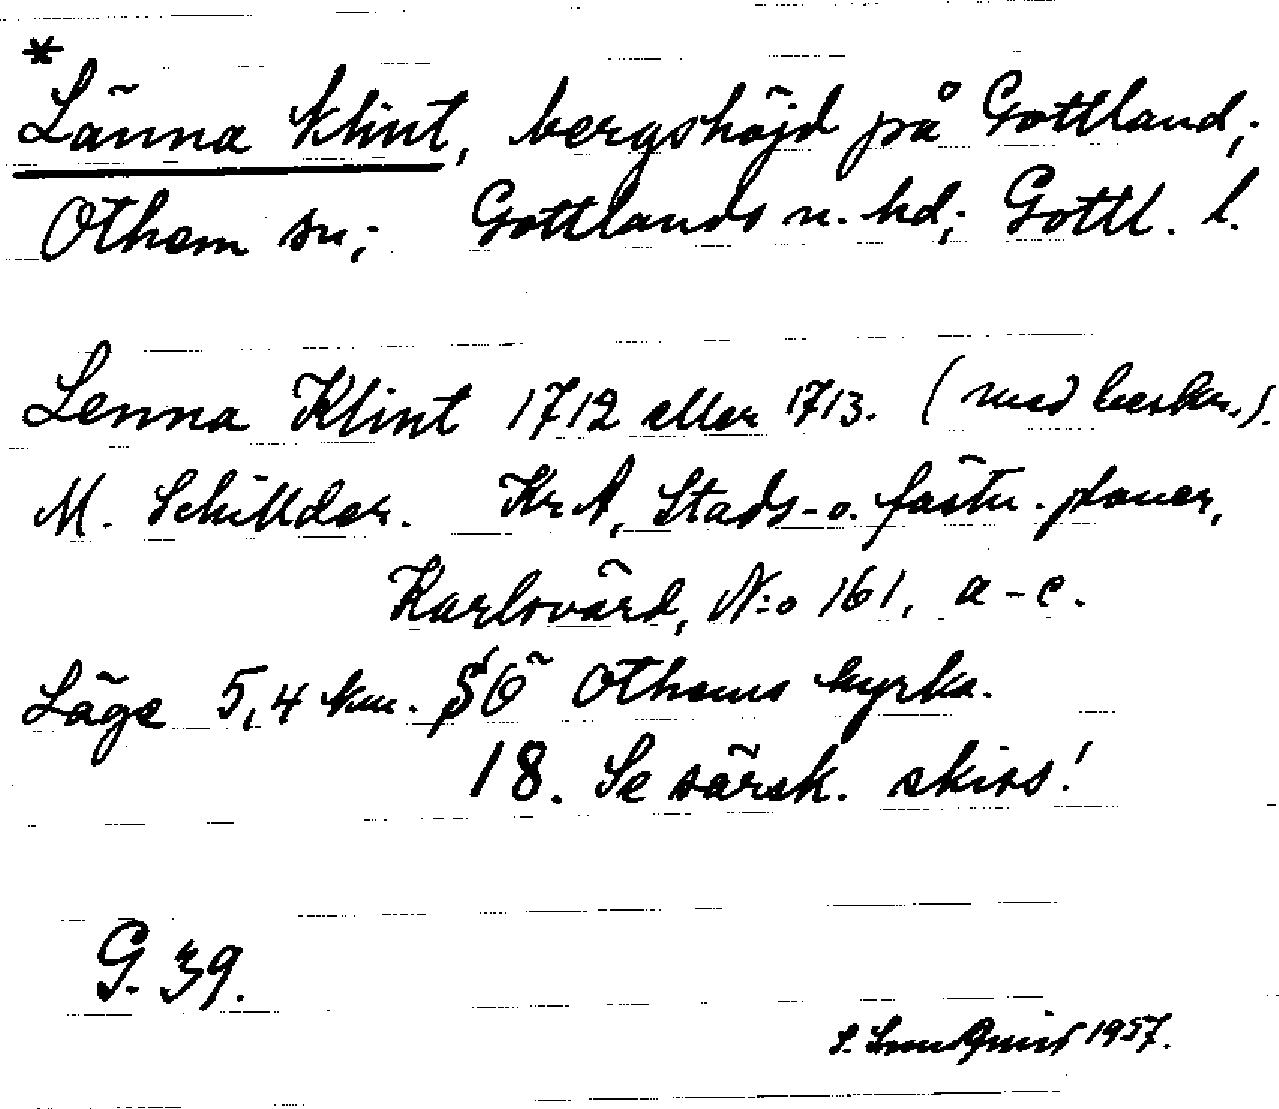 *
Länna klint, bergshöjd på Gottland;
Othem sn; Gottlands n. hd; Gottl. l.
Lenna Klint 1712 eller 1713. (med beskr.).
M. Schillder. Kr A, Stads- o. fästn. planer,
Karlsvärd, N:o 161, a - c.
Läge 5,4 km. SÖ Othems kyrka.
18. Se särsk. skiss!
G. 39.
S. 1957.